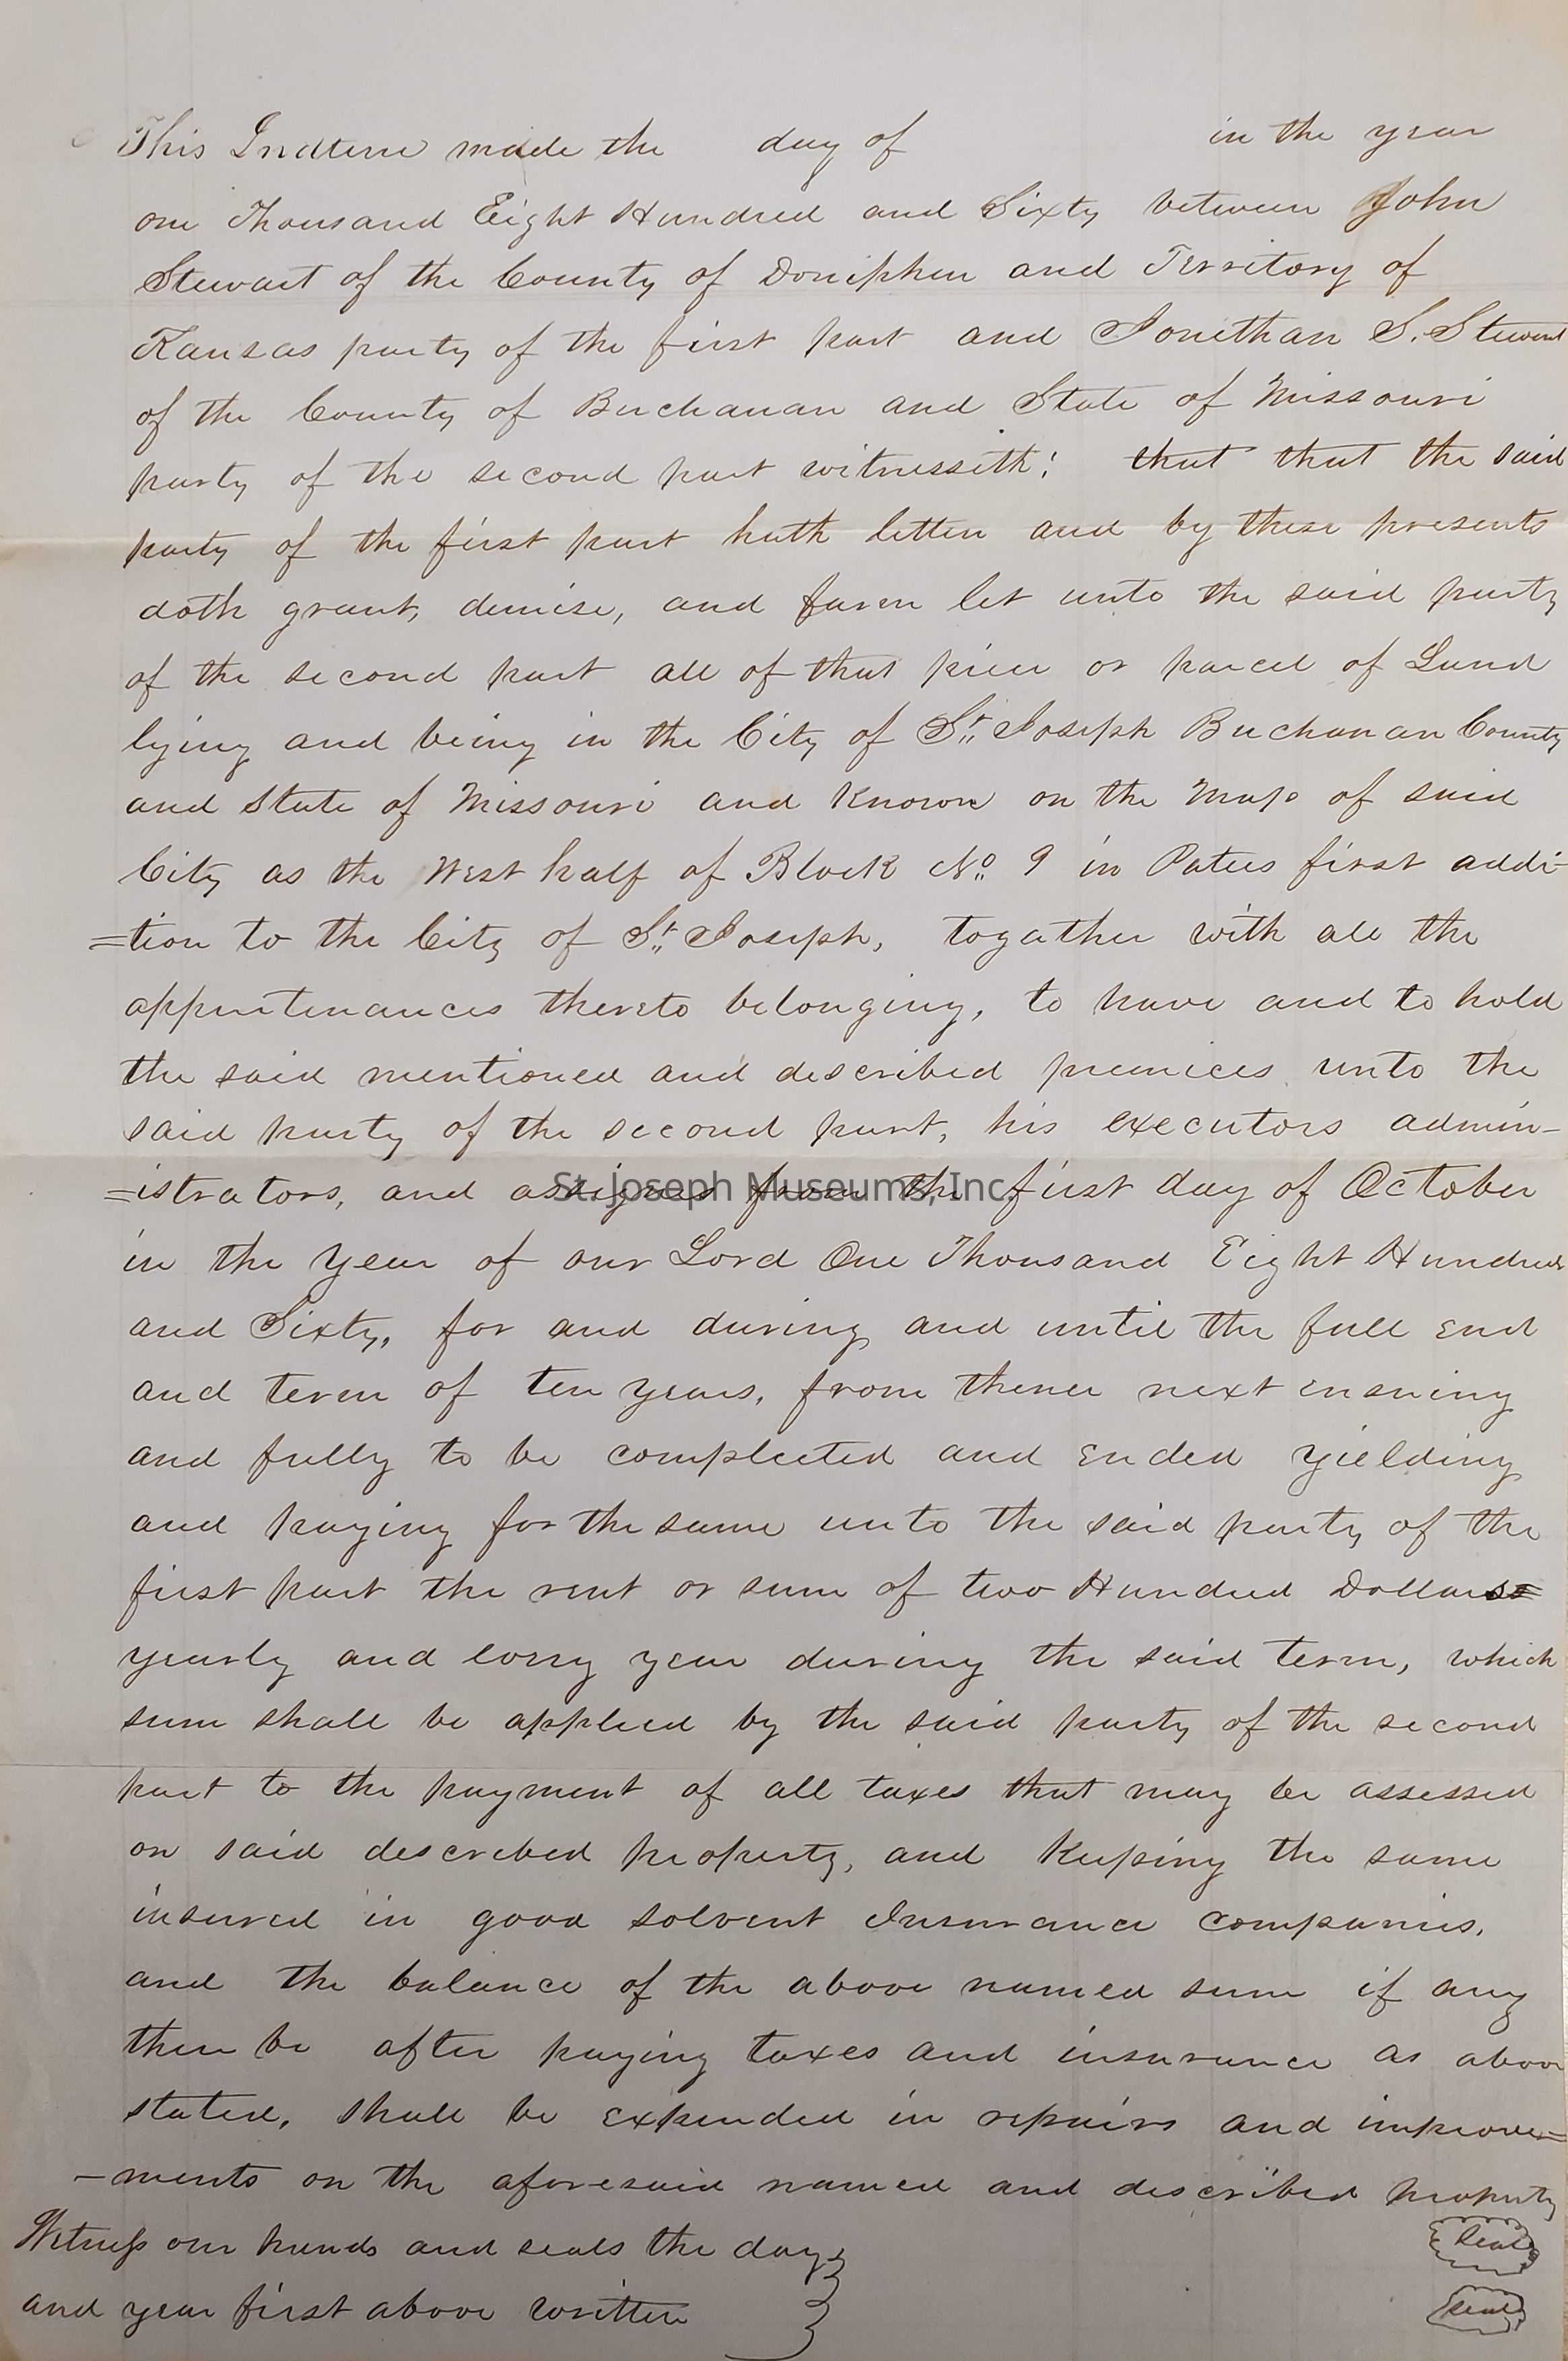 This Indture made the day of in the year
one Thousand Eight Hundred and Sixty between John
Stewart of the County of Doniphen and Territory of
Kansas party of the first part and Jonethan S. Stewart
of the County of Buchanan and State of Missouri
party of the second part witnesseth: that that the said
party of the first part hath letten and by these presents
doth grant, demise, and farm let unto the said party
of the second part all of that piece or parcel of Land
lying and being in the City of St. Joseph Buchanan County
and State of Missouri and Known on the Map of said
City as the West half of Block No. 9 in Patees first addi-
=tion to the City of St. Joseph, togather with all the
appurtenances thereto belonging, to have and to hold
the said mentioned and described premices unto the
said party of the second part, his executors admin-
=istrators, and assigns from the first day of October
St. Joseph Museums, Inc.
in the year of our Lord One Thousand Eight Hundred
and Sixty, for and during and until the full end
and term of ten years, from thence next ensuing
and fully to be compleeted and ended yielding
and paying for the same unto the said party of the
first part the rent or sum of two Hundred Dollars
yearly and every year during the said term, which
sum shall be applied by the said party of the second
part to the payment of all taxes that may be assessed
on said described property, and Keeping the same
insured in good solvent Insurance companies,
and the balance of the above named sum if any
there be after paying taxes and insurance as above
stated, shall be expended in repairs and improve=
-ments on the aforesaid named and described property
Witness our hands and seals the day Seal
and year first above written Seal